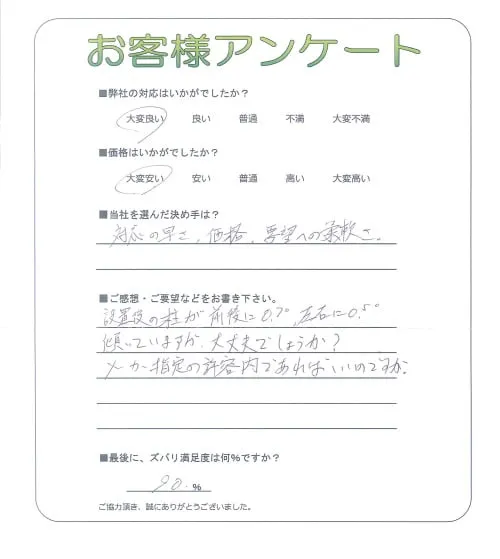 お客様アンケート
■弊社の対応はいかがでしたか？
大変良い 良い 普通 不満 大変不満
■価格はいかがでしたか？
大変安い 安い 普通 高い 大変高い
■当社を選んだ決め手は？
対応の早さ、価格、要望への柔軟さ。
■ご感想・ご要望などをお書き下さい。
設置後の柱が前後に0.7°、左右に0.5°
傾いていますが、大丈夫でしょうか？
メーカー指定の許容内であればいいのですが。
■最後に、ズバリ満足度は何％ですか？
90.％
ご協力頂き、誠にありがとうございました。